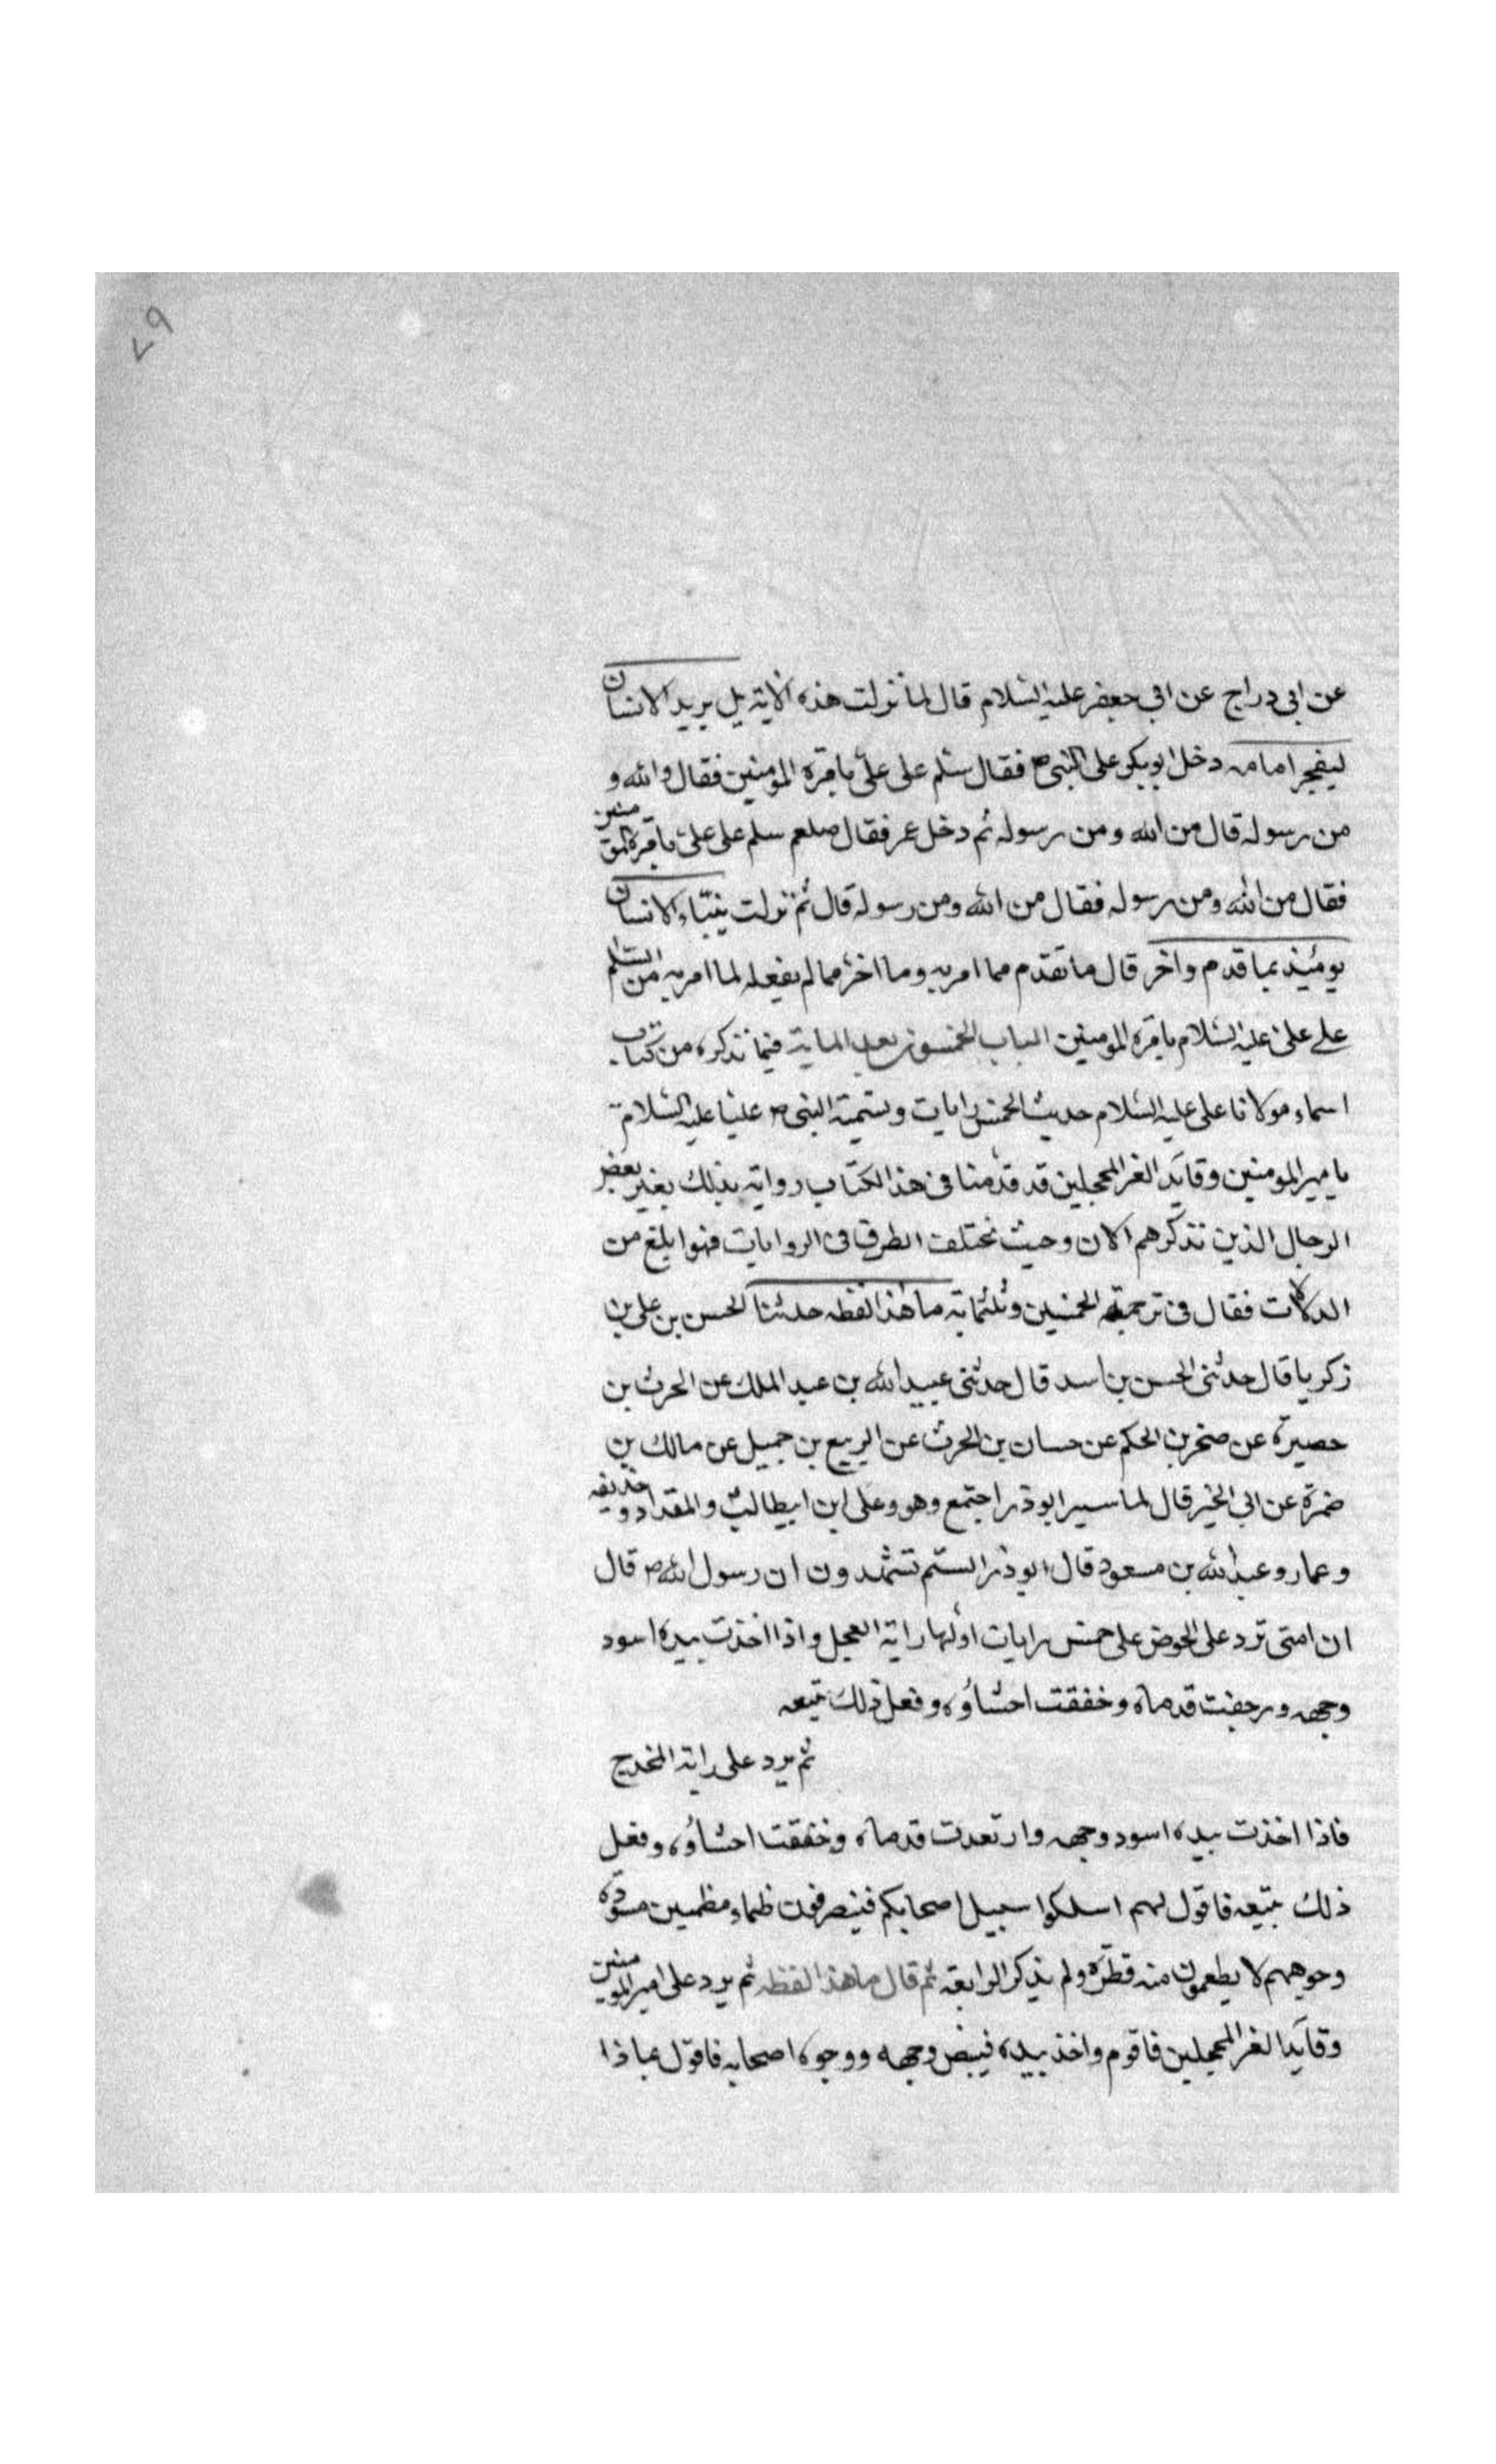 ٧٩
عن ابى دراج عن ابى جعفر عليه السلام قال لما نزلت هذه الاية بل يريد الانسان
ليفجر امامه دخل ابو بكر على النبى ص فقال سلم على على بامرة المومنين فقال والله و
من رسوله قال من الله ومن رسوله ثم دخل عمر فقال صلعم سلم على على بامرة المومنين
فقال من الله ومن رسوله فقال من الله ومن رسوله قال ثم نزلت ينبّاء الانسان
يومئيذ بما قدم واخر قال ما تقدم مما امر به وما اخر مما لم يفعله لما امر به من السلم
على على عليه السلام بامرة المومنين الباب الخمسون بعد المايه فيما نذكره من كتاب
اسماء مولانا على عليه السلام حديث الخمس رايات وتسمية النبى ص عليا عليه السلام
باميرالمومنين وقايد الغر المحجلين قد قدمنا فى هذا الكتاب رواية بذلك بغير بعض
الرجال الذين نذكرهم الان وحيث نختلف الطرق فى الروايات فهو ابلغ من
الدلالات فقال فى ترجمة الخمسين وثلثماية ما هذا لفظه حدثنا الحسن بن على بن
زكريا قال حدثنى الحسن بن اسد قال حدثنى عبيد الله بن عبد الملك عن الحرث بن
حصيرة عن صخر بن الحكم عن حسان بن الحرث عن الربيع بن جميل عن مالك بن
ضمرة عن ابى الخير قال لما سير ابوذر اجتمع وهو وعلى ابن ابيطالب والمقداد وحذيفه
وعمار وعبد الله بن مسعود قال ابوذر الستم تشهدون ان رسول الله ص قال
ان امتى ترد على الحوض على خمس رايات اولها راية العجل واذا اخذت بيده اسود
وجهه ورجفت قدماه وخفقت احشاؤه وفعل ذلك تبعه
ثم يرد على راية المخدج
فاذا اخذت بيده اسود وجهه وارتعدت قدماه وخفقت احشاؤه وفعل
ذلك بتبعه فاقول لهم اسلكوا سبيل اصحابكم فينصرفون ظماء مظمين مسودة
وجوههم لا يطعمون منه قطرة ولم يذكر الرابعة ثم قال ما هذا لفظه ثم يرد على امير المومنين
وقايد الغر المحجلين فاقوم واخذ بيده فيبيض وجهه ووجوه اصحابه فاقول بماذا